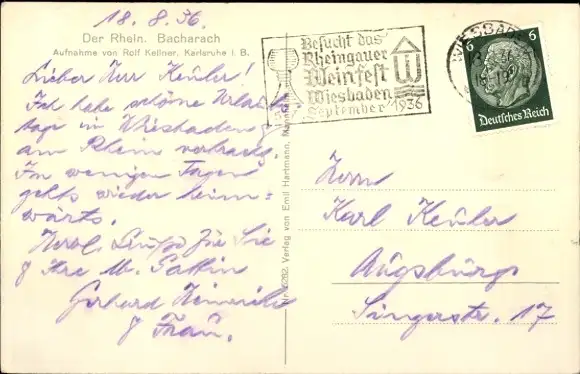 18.8.36.
Der Rhein. Bacharach
Aufnahme von Rolf Kellner, Karlsruhe i. B.
Lieber Herr Keuler!
Ich habe schöne Urlaubs-
tage in Wiesbaden &
am Rhein verbracht.
In wenigen Tagen
gehts wieder heim=
wärts.
Herzl. Grüße für Sie
& Ihre Gattin
Gerhard Heinrich
& Frau.
Nr. 6262. Verlag von Emil Hartmann, Mannheim
Besucht das
Rheingauer
Weinfest
Wiesbaden
September 1936
WIESBADEN
6 6
Deutsches Reich
Herrn
Karl Keuler
Augsburg
Singerstr. 17